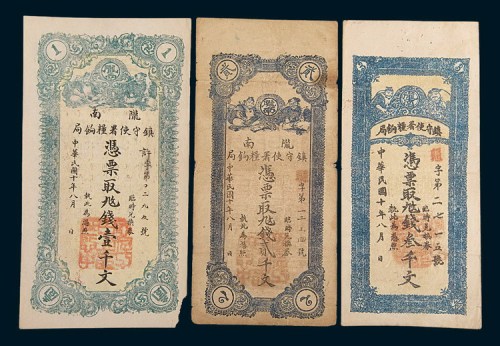 1
1
隴南
鎮守使署糧餉局
字第一二八九號
憑票取兆錢壹千文
臨時兌換券
中華民國十年八月 日
執此為憑
1
1
貳
貳
隴南
鎮守使署糧餉局
字第
號
憑票取兆錢貳千文
臨時兌換券
中華民國十年八月 日
執此為憑
2
2
鎮守使署糧餉局
字第二一七一五號
憑票取兆錢叁千文
臨時兌換券
中華民國十年八月 日
執此為憑